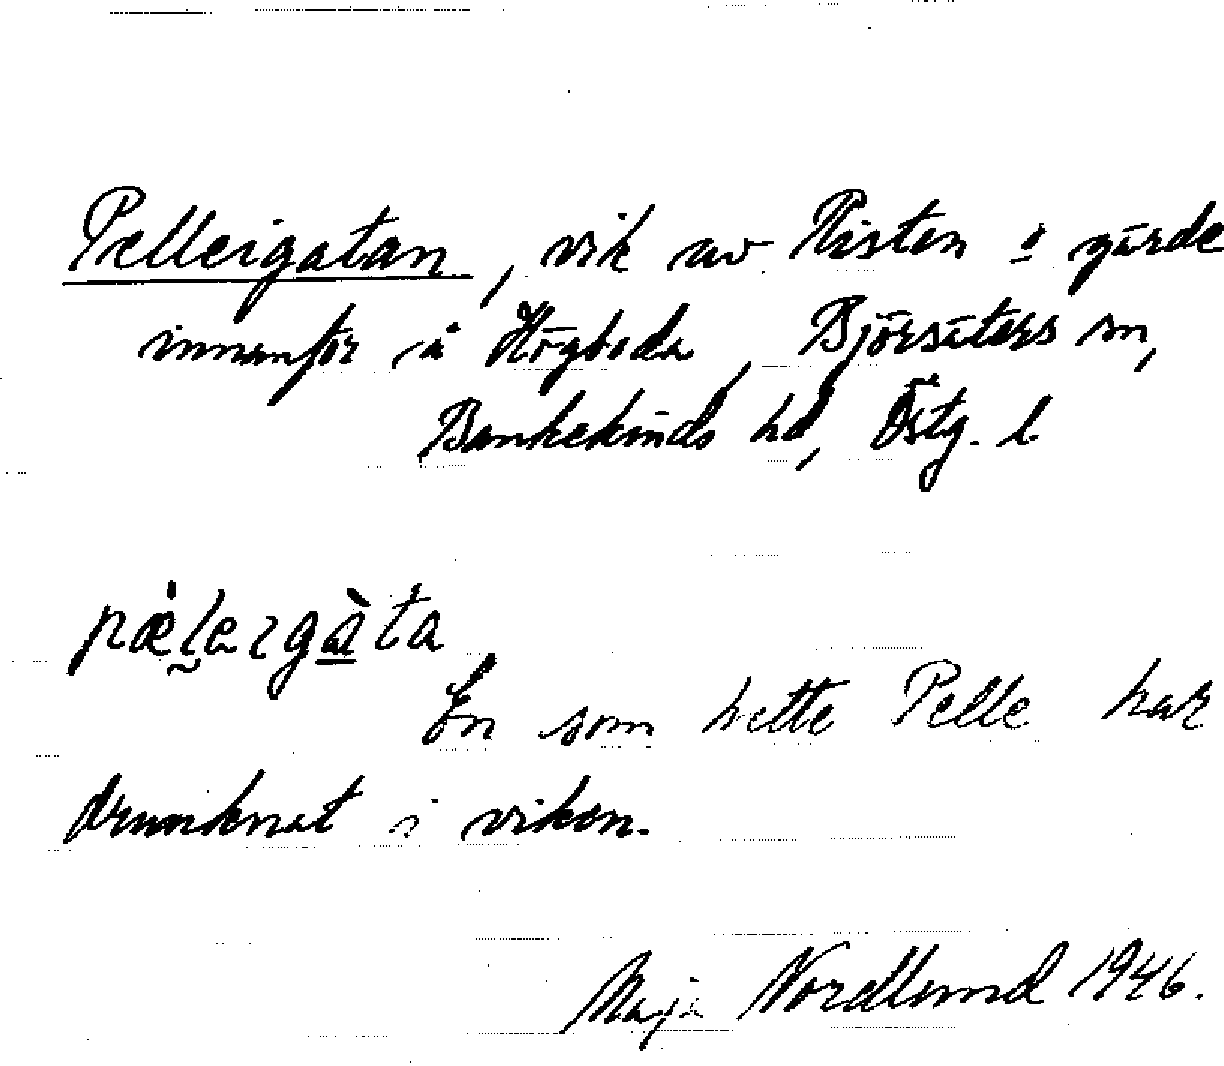 Pelleigatan, vik av Risten o gärde
innanför i å Högboda, Björsäters sn,
Bankekinds hd, Östg. l
En som hette Pelle har
drunknat i viken.
Maja Nordlund 1946.